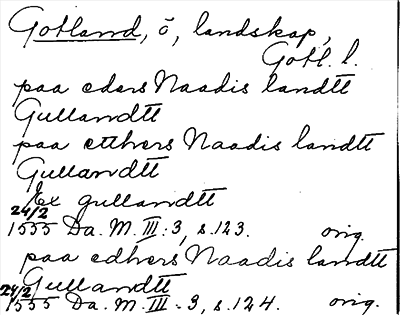 Gotland, ö, landskap,
Gotl. l.
paa eders Naadis landtt
Gullandtt
paa etthers Naadis landtt
Gullandtt
Ex gullandtt
24/2
1555 Da. M. III: 3, s. 123. orig.
paa edhers Naadis landtt
Gullandtt
24/2
1555 Da. M. III. 3, s. 124. orig.